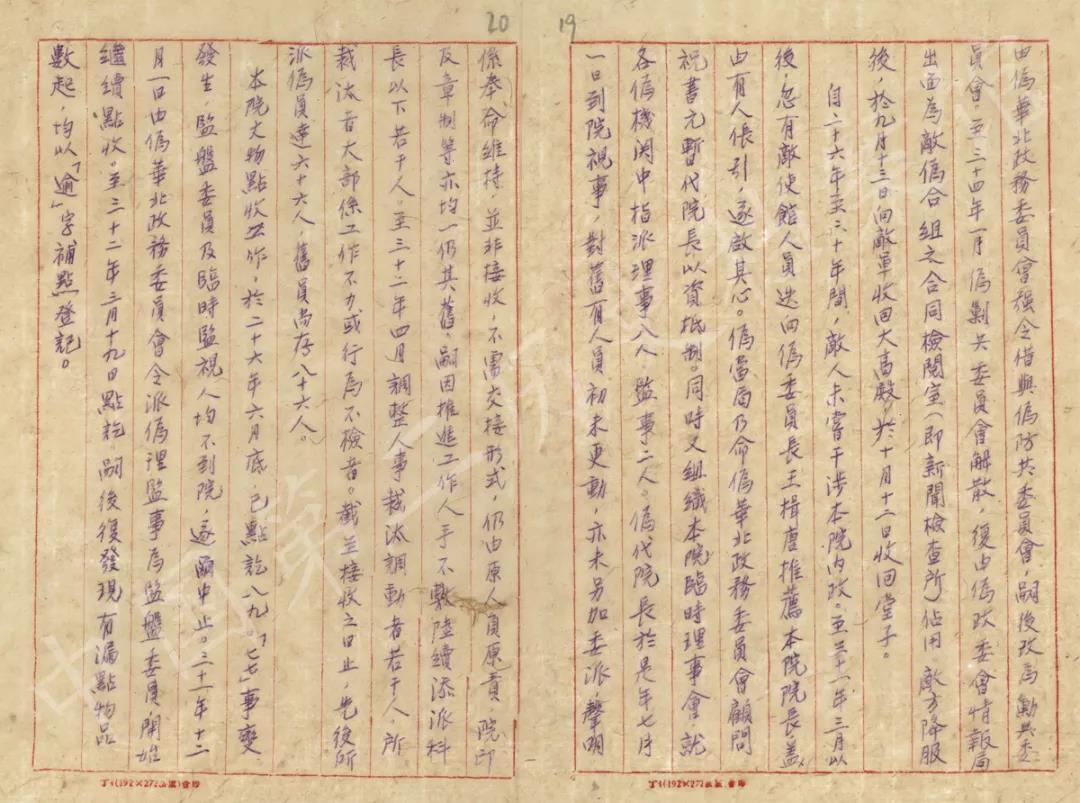 19
由偽華北政務委員會強令借與偽防共委員會,嗣後改為勦共委
員會。至三十四年一月偽剿共委員會解散,復由偽政委會情報局
出面為敵偽合組之合同檢閱室(即新聞檢查所)佔用。敵方降服
後,於九月十三日向敵軍收回大高殿,於十月十二日收回堂子。
自二十六年至三十年間,敵人未嘗干涉本院內政。至三十一年三月以
後,忽有敵使館人員迭向偽委員長王揖唐推薦本院院長,蓋
由有人倀引,遂啟其心。偽當局乃命偽華北政務委員會顧問
祝書元暫代院長以資抵制。同時又組織本院臨時理事會,就
各偽機関中指派理事八人,監事二人。偽代院長於是年七月
一日到院視事,對舊有人員初未更動,亦未另加委派,聲明
20
係奉命維持,並非接收,不需交接形式,仍由原人員原責,院印
及章制等亦均一仍其舊。嗣因推進工作人手不敷,陸續添派科
長以下若干人。至三十二年四月調整人事裁汰調動者若干人,所
裁汰者大部係工作不力或行為不檢者。截至接收之日止,先後所
派偽員達六十六人,舊員尚存八十六人。
本院文物點收工作,於二十六年六月底,已點訖八九。「七七」事變
發生,監盤委員及臨時監視人均不到院,遂爾中止。三十一年十二
月一日由偽華北政務委員會令派偽理監事為監盤委員開始
繼續點收。至三十二年三月十九日點訖。嗣後復發現有漏點物品
數起,均以「逾」字補點登記。
中國第二歷史檔案館